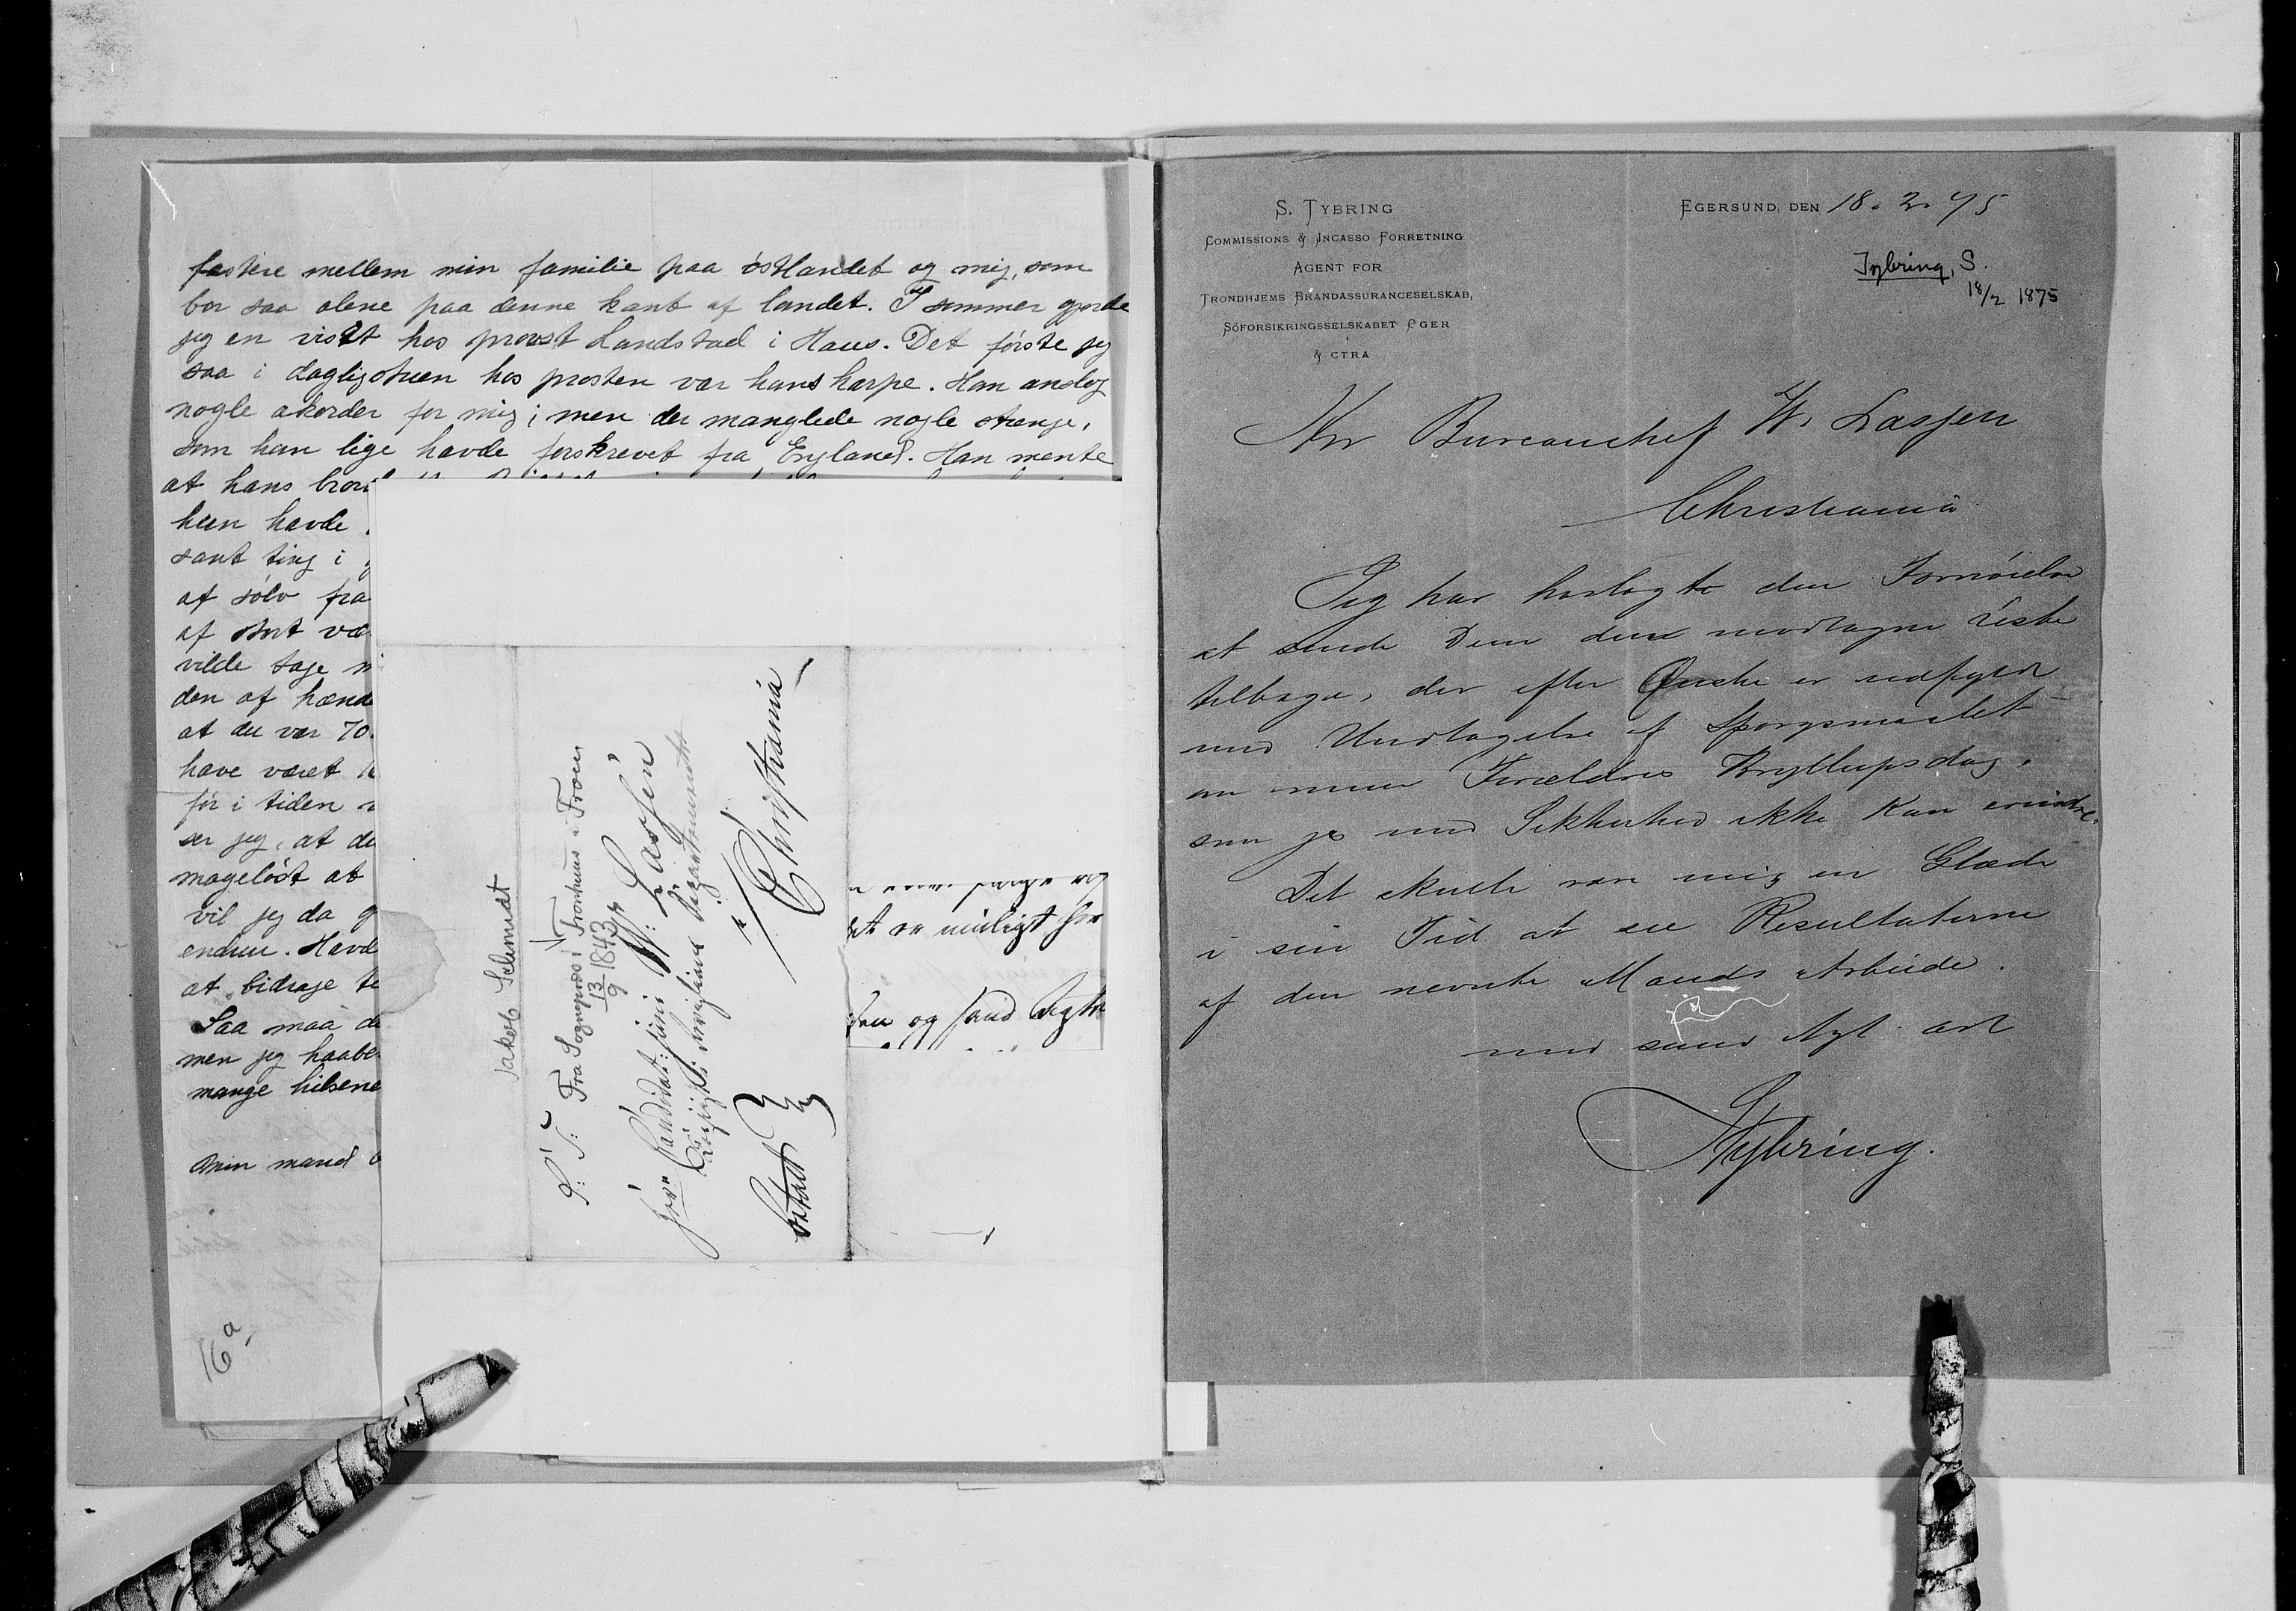 fastere mellem min familie paa østlandet og mig, som
bor saa alene paa denne kant af landet. I sommer gjorde
jeg en visit hos provst Landstad i Haus. Det første jeg
saa i dagligstuen hos provsten var hans harpe. Han anslog
nogle akorder for mig; men der manglede nogle strenge,
som han lige havde forskrevet fra England. Han mente
at hans bror
hun havde
sant ting i
af sølv fra
af stort væ
vilde tage
den af hænd
at du var 70
have været
før i tiden
ser jeg, at de
mageløst at
vil jeg da
endnu. Havd
at bidrage te
Saa maa de
men jeg haabe
mange hilsene
min mand
16a
Jakob Schmidt
S: T: Fra Sognepræst i Tromhus i Trom
13/9 1843
Herr Candidat juris W: Lassen
Christiania
betalt
det er muligt for
den og sand Agte
S. TYBRING
COMMISSIONS & INCASSO FORRETNING
AGENT FOR
TRONDHJEMS BRANDASSURANCESELSKAB,
SÖFORSIKRINGSSELSKABET EGER
& CTRA
EGERSUND, DEN 18. 2. 75
Tybring, S.
18/2 1875
Hr Bureauchef W. Lassen
Christiania
Jeg har hoslagte den Fornøielse
at sende Dem den modtagne Liste
tilbage, der efter Ønske er udfyldt
med Undtagelse af Spørgsmaalet
om mine Forældres Bryllupsdag,
som jeg med Sikkerhed ikke kan erindre.
Det skulle være mig en Glæde
i sin Tid at see Resultaterne
af den nevnte Mands Arbeide.
med sand Agt
STybring.